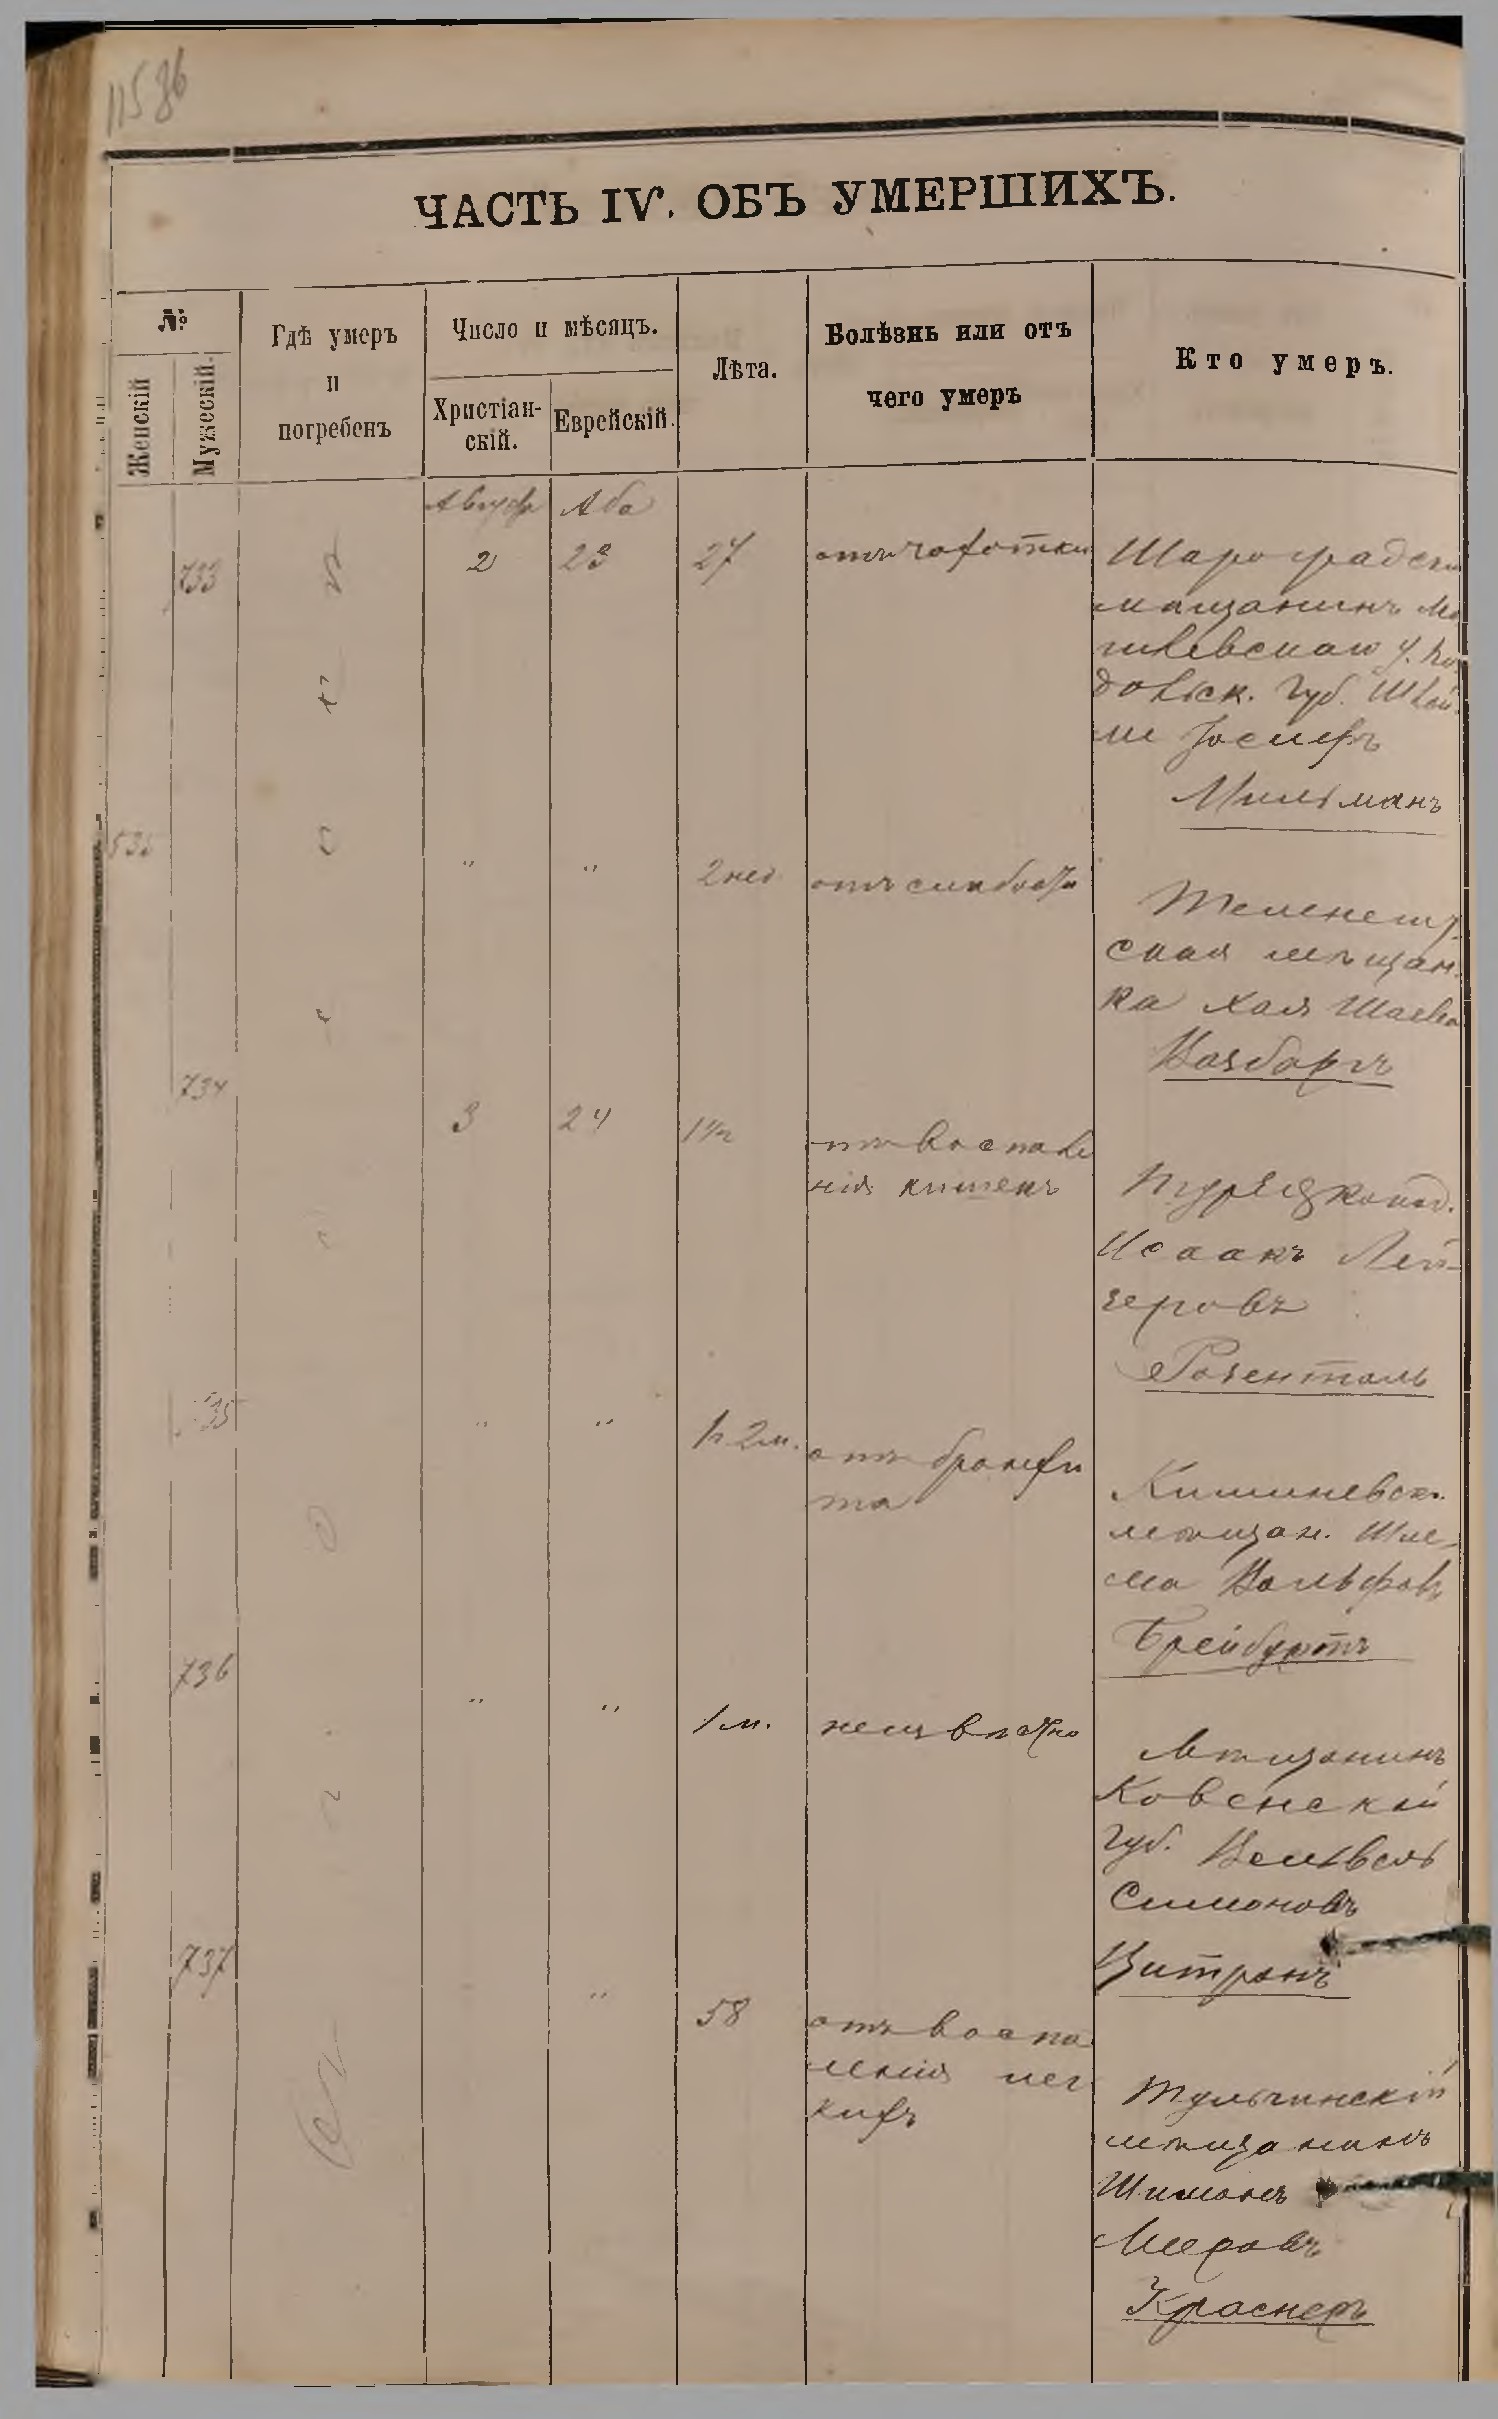 1158б
ЧАСТЬ IV. ОБЪ УМЕРШИХЪ.
№
Женскій
Мужескій.
Гдѣ умеръ
и
погребенъ
Число и мѣсяцъ.
Христіан-
скій.
Еврейскій.
Лѣта.
Болѣзнь или отъ
чего умеръ
Кто умеръ.
Август Аба
733 2 23 27 отъ чахотки Шароградски
мѣщанинъ Мо
гилевскаго у. По
дольск. губ.
Іосифъ
Мильманъ
535 " " 2 нед отъ слабости
ская мѣщан-
ка Хая Шаева
734 3 24 1 1/2 отъ воспале
нія кишекъ Турецкопод.
Исаакъ Лей-
зеровъ
Розенталь
735 " " 1 г 2 м. отъ бронхи
та Кишиневск.
мѣщан. Шле-
ма Вольфовъ
736 " " 1 м. неизвѣстно Мѣщанинъ
Ковенской
губ. Вельвель
Симоновъ
737 " 58 отъ воспа
ленія лег
кихъ Тульчинскій
мѣщанинъ
Шимонъ
Мееровъ
Краснеръ